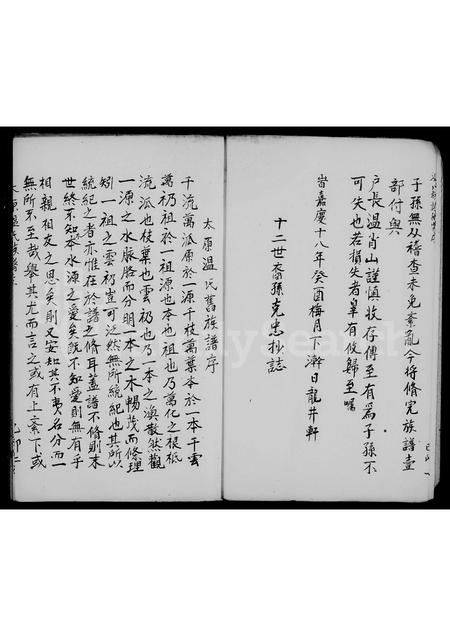 子孫無从稽查未免紊亂今將脩完族譜壹
部付與
户長温肖山謹慎收存傳至有為子孫不
可失也若損失者辠有攸歸至囑
旹嘉慶十八年癸酉梅月下澣日龍井軒
十二世裔孫克忠抄誌
太原温氏舊族譜序
千流萬派原於一源千枝萬葉本於一本千雲
萬礽祖於一祖源也本也祖也乃萬化之根柢
流派也枝葉也雲礽也乃一本之渙散然觀
一源之水脉胳而分明一本之木暢茂而條理
矧一祖之雲礽豈可泛然無所統紀也其所以
統紀之者亦惟在於譜之脩耳蓋譜不脩則本
世終不知本水源之愛矣既不知愛則無有乎
相親相友之思矣則又安知其不夷名分而一
無所不至哉舉其尤而言之或有上紊下或
FamilySearch